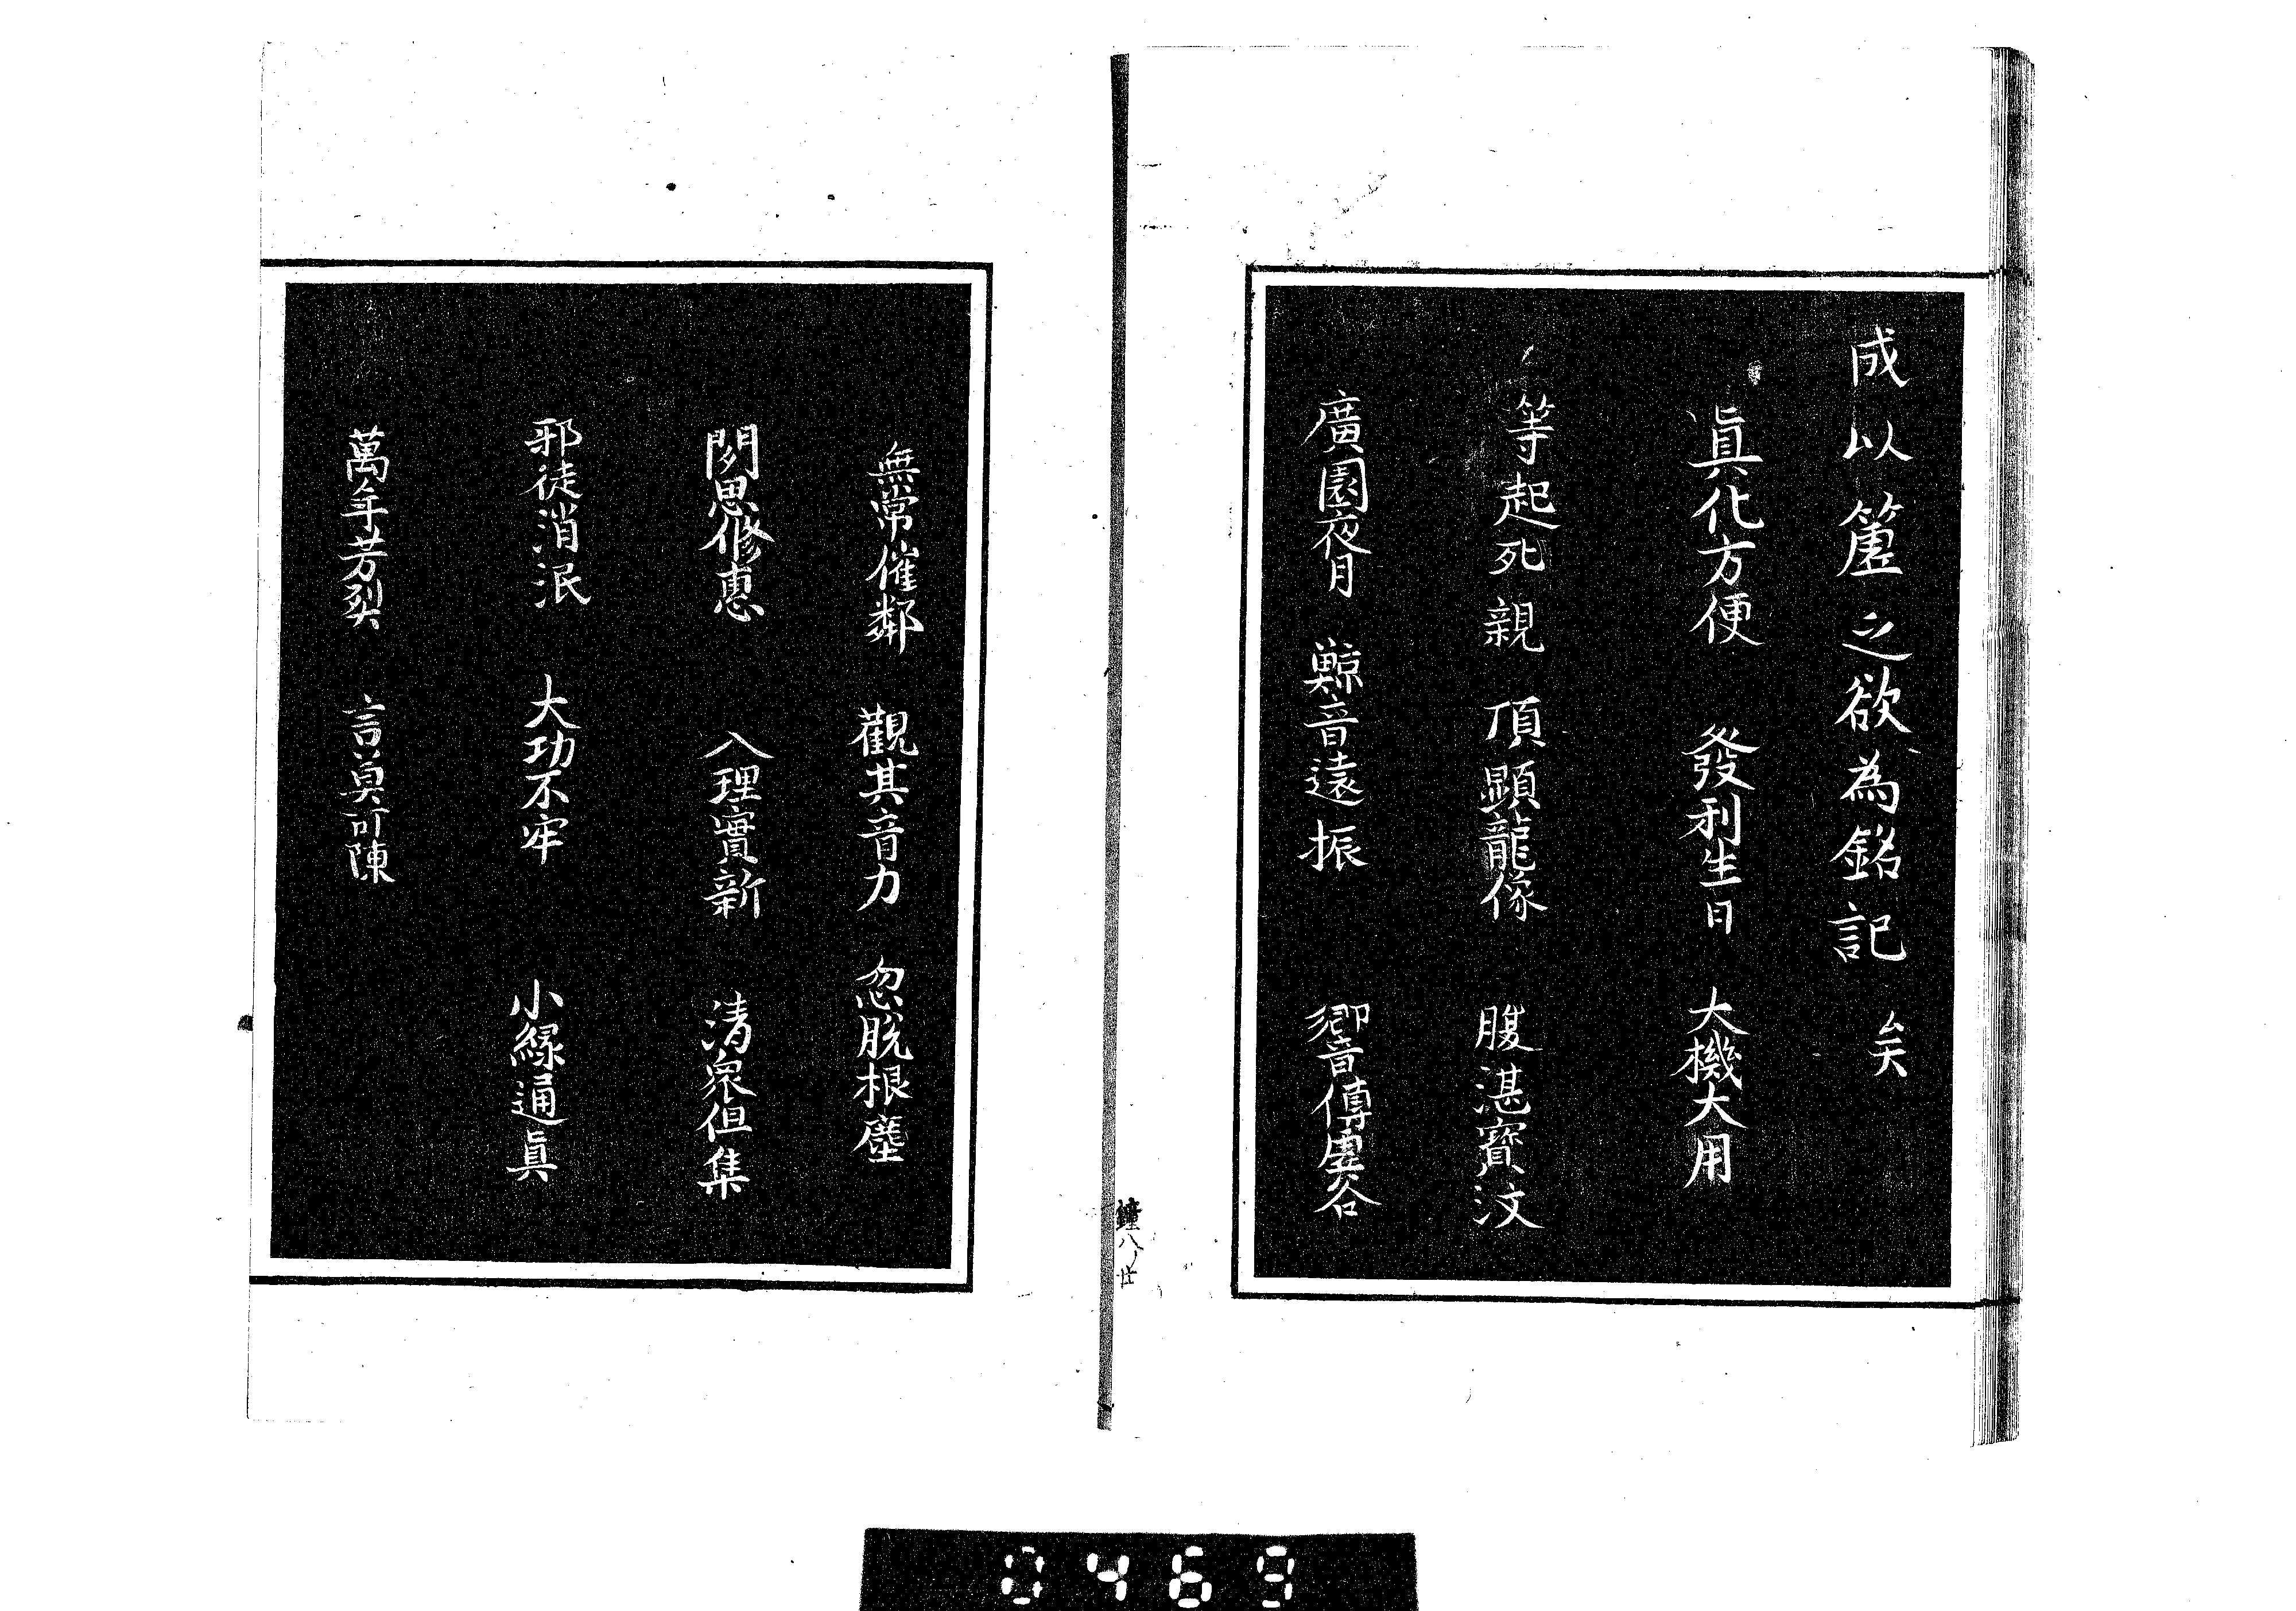 成以簠之欲為銘記矣
眞化方便 發利生日 大機大用
等起死親 頂顕龍像 腹湛寶汶
廣園夜月 鯨音遠振 響傳虚谷
無常催鄰 觀其音力 忽脱根塵
聞思修惠 入理實新 清衆但集
邪徒消泯 大功不牢 小縁通眞
萬年芳烈 言莫可陳
鐘八ノ廿
0469